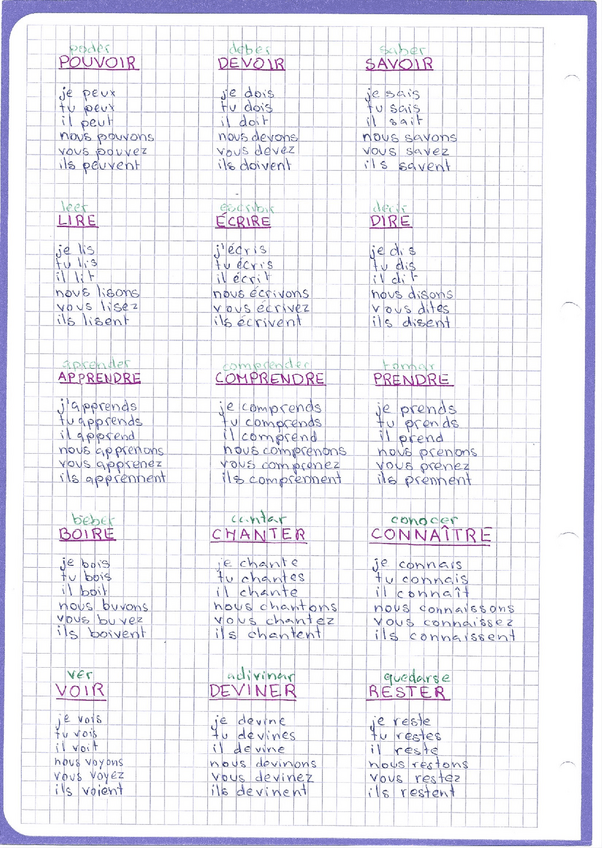 poder
POUVOIR
je peux
tu peux
il peut
nous pouvons
vous pouvez
ils peuvent
deber
DEVOIR
je dois
tu dois
il doit
nous devons
vous devez
ils doivent
saber
SAVOIR
je sais
tu sais
il sait
nous savons
vous savez
ils savent
leer
LIRE
je lis
tu lis
il lit
nous lisons
vous lisez
ils lisent
escribir
ÉCRIRE
j'écris
tu écris
il écrit
nous écrivons
vous écrivez
ils écrivent
decir
DIRE
je dis
tu dis
il dit
nous disons
vous dites
ils disent
aprender
APPRENDRE
j'apprends
tu apprends
il apprend
nous apprenons
vous apprenez
ils apprennent
comprender
COMPRENDRE
je comprends
tu comprends
il comprend
nous comprenons
vous comprenez
ils comprennent
tomar
PRENDRE
je prends
tu prends
il prend
nous prenons
vous prenez
ils prennent
beber
BOIRE
je bois
tu bois
il boit
nous buvons
vous buvez
ils boivent
cantar
CHANTER
je chante
tu chantes
il chante
nous chantons
vous chantez
ils chantent
conocer
CONNAÎTRE
je connais
tu connais
il connaît
nous connaissons
vous connaissez
ils connaissent
ver
VOIR
je vois
tu vois
il voit
nous voyons
vous voyez
ils voient
adivinar
DEVINER
je devine
tu devines
il devine
nous devinons
vous devinez
ils devinent
quedarse
RESTER
je reste
tu restes
il reste
nous restons
vous restez
ils restent